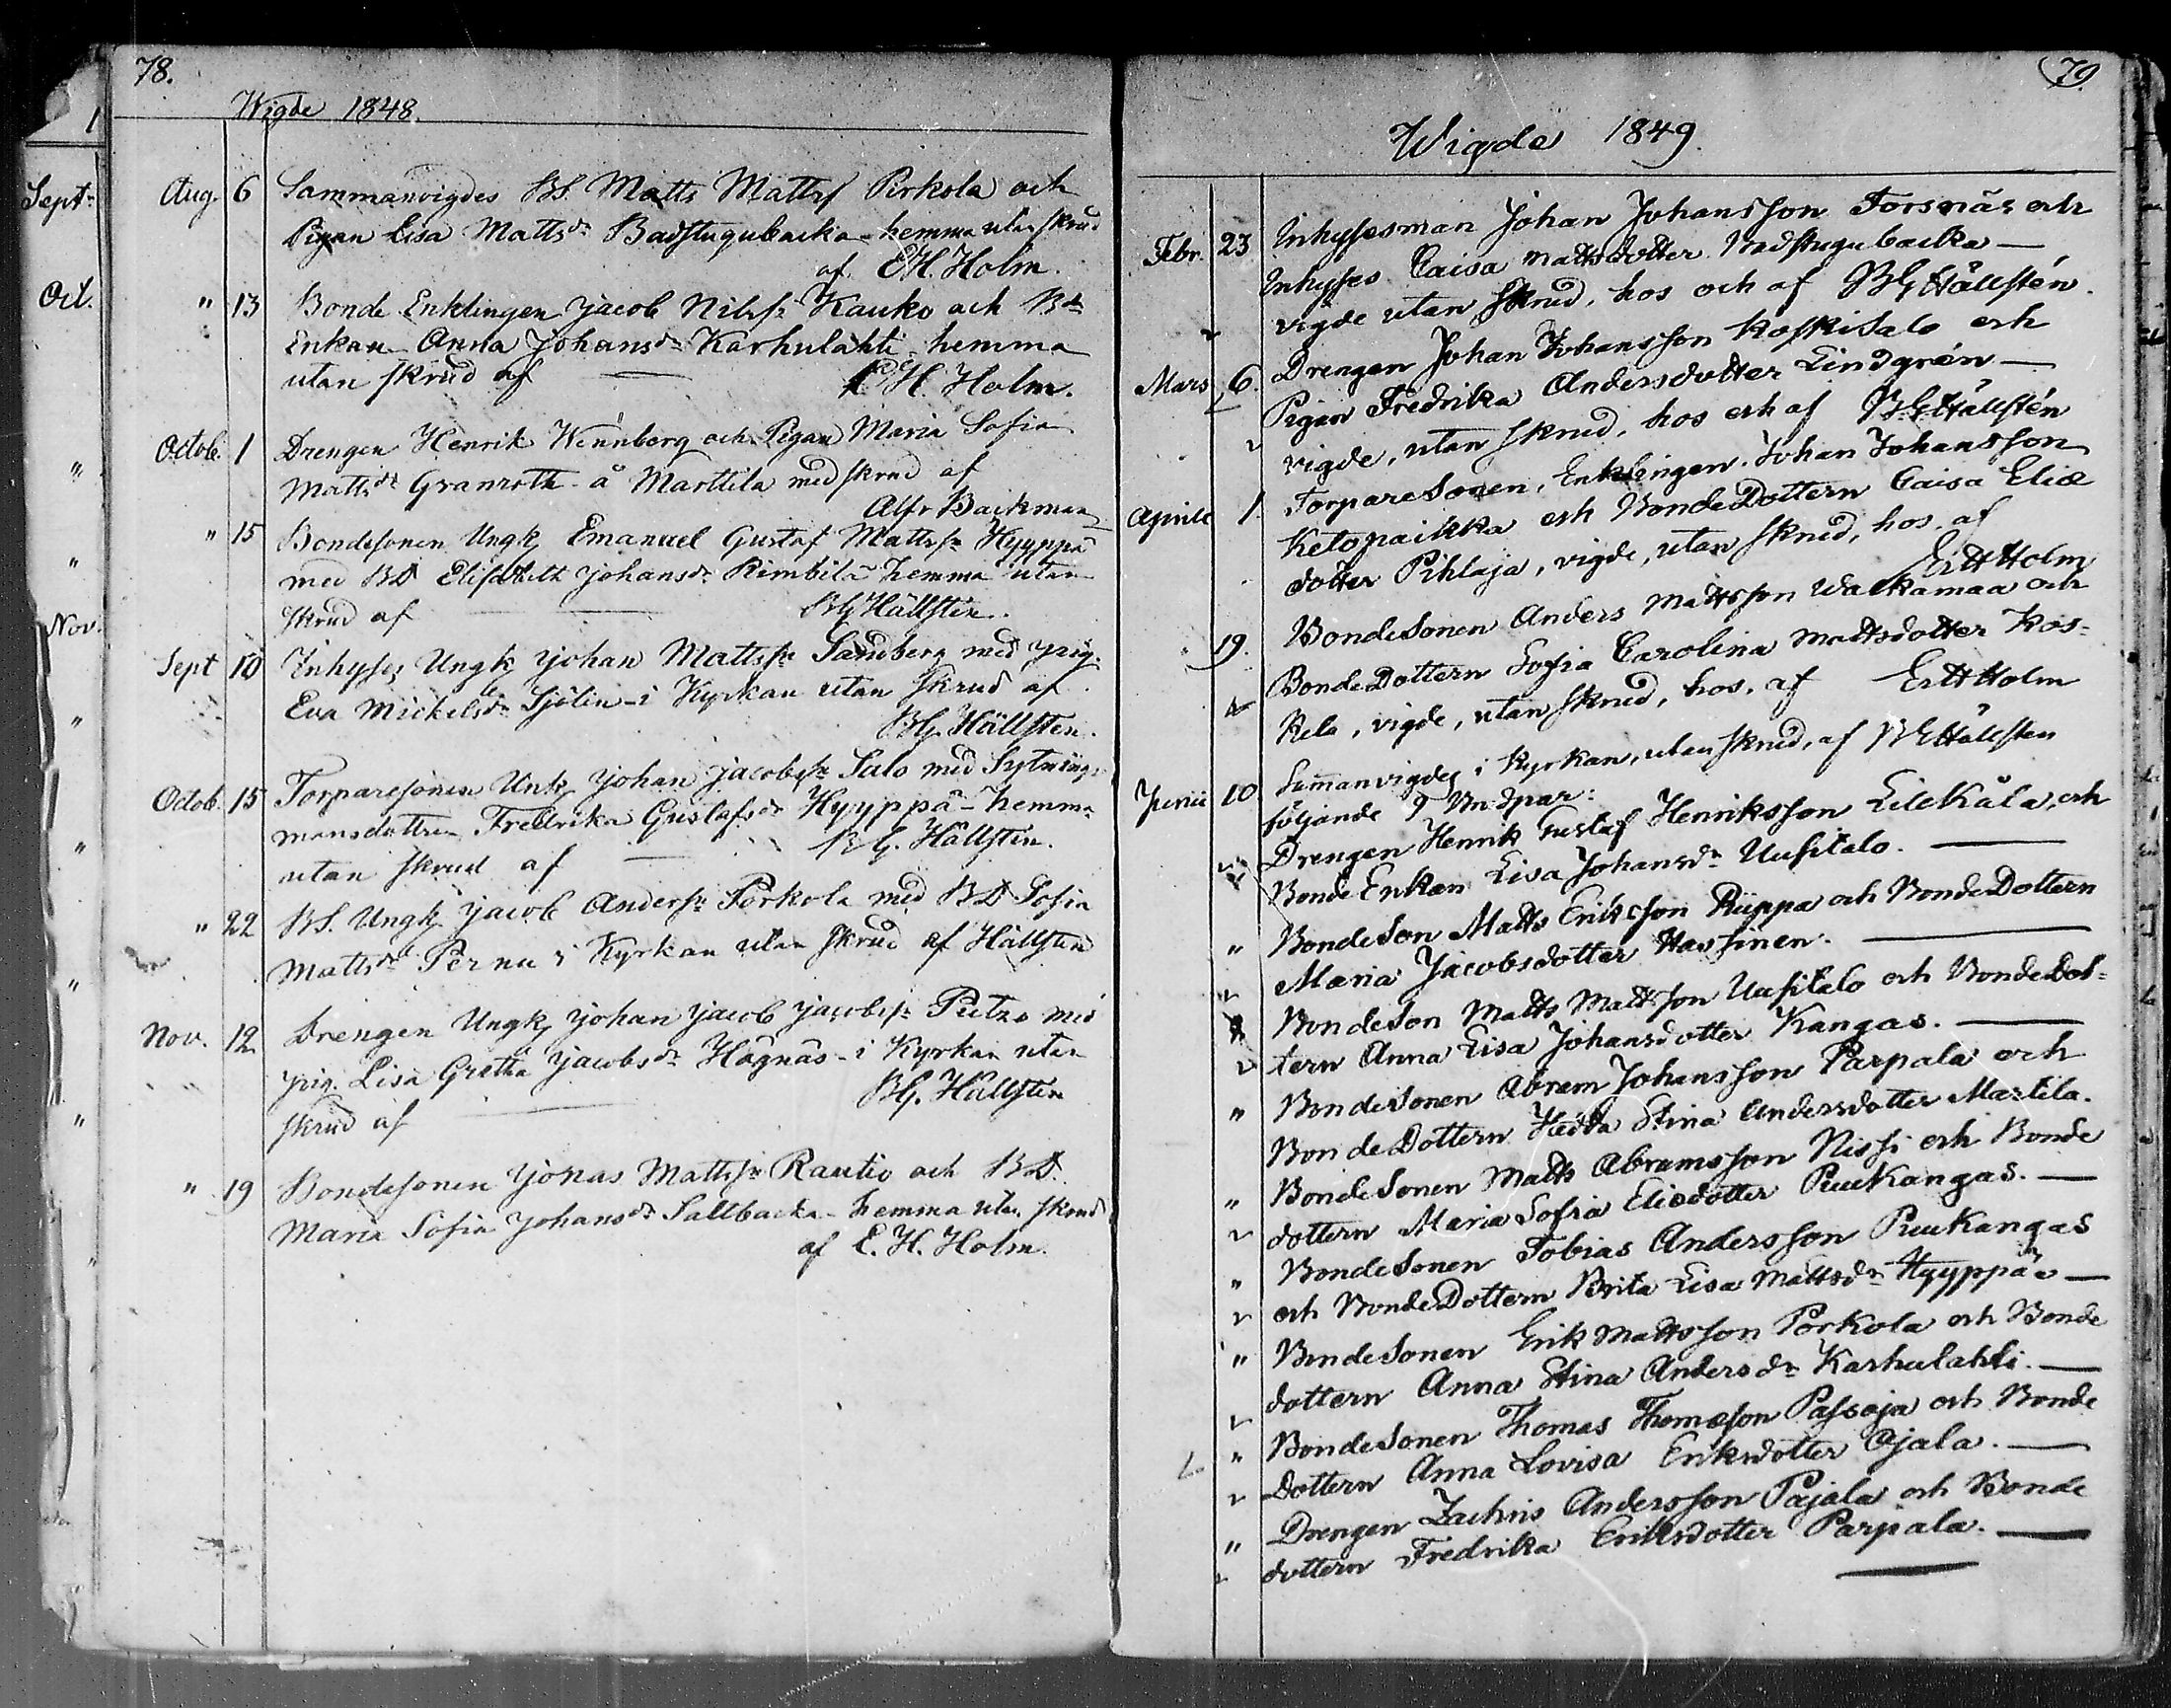 78.
Wigde 1848.
Sept.
Oct.
Nov.
Aug. 6 Sammanvigdes BS. Matts Mattsſ Pirkola och
Pigan Lisa Mattsdr Badstugubacka hemma utan skrud
af EH. Holm.
" 13 Bonde Enklingen Jacob Nilsſn Kauko och Bde
Enkan Anna Johansdr Karhulahti hemma
utan skrud af — EH. Holm.
Octob. 1 Drengen Henrik Wennberg och Pigan Maria Sofia
Mattsdr Granroth å Marttila med skrud af
Alfr Backman
" 15 Bondesonen Ungk Emanuel Gustaf Mattsſn Hyyppä
med BD Elisabeth Johansdr Rimbilä hemma utan
skrud af — BG Hällsten.
Sept 10 Inhyses Ungk Johan Mattsſn Sandberg med pig.
Eva Mickelsdr Sjölin - i Kyrkan utan skrud af
BG. Hällsten.
Octob. 15 Torparesonen Unk Johan Jacobsſn Salo med Sytnings
mansdottren Fredrika Gustafsdr Hyyppä - hemma
utan skrud af — BG. Hällsten.
" 22 BS. Ungk Jacob Andersſn Porkola med BD Sofia
Mattsdr Pernu i Kyrkan utan skrud af Hällsten
Nov. 12 Drengen Ungk Johan Jacob Jacobsſn Putro med
pig. Lisa Gretha Jacobsdr Högnäs - i Kyrkan utan
skrud af — BG. Hällsten
" 19 Bondesonen Jonas Mattsſn Rautio och BD.
Maria Sofia Johansdr Saltbacka - hemma utan skrud
af E. H. Holm.
79.
Wigde 1849.
Febr. 23 Inhysesman Johan Johansson Forsnäs och
Inhyses Caisa Mattsdotter Badstugubacka —
vigde utan skrud, hos och af BG Hällstén.
Mars 6. Drengen Johan Johansson Koskisalo och
Pigan Fredrika Andersdotter Lindgrén —
vigde, utan skrud, hos och af BG Hällstén
Aprill 1. TorpareSonen, Enklingen Johan Johansson
Ketopaikka och BondeDottern Caisa Eliæ
dotter Pihlaja, vigde, utan skrud, hos. af
EH Holm
" 19. BondeSonen Anders Mattsson Walkamaa och
BondeDottern Sofia Carolina Mattsdotter Kos-
kela, vigde, utan skrud, hos. af EH Holm
Junii 10 Samanvigdes i Kyrkan, utan skrud, af BG Hällsten
följande 9 Brudpar:
Drengen Henrik Gustaf Henriksson LilleKåla, och
BondeEnkan Lisa Johansdr Uusitalo. —
" BondeSon Matts Eriksson Riippa och BondeDottern
Maria Jacobsdotter Hassinen. —
BondeSon Matts Mattsson Uusitalo och BondeDot-
tern Anna Lisa Johansdotter Kangas. —
" BondeSonen Abram Johansson Parpala och
BondeDottern Hedda Stina Andersdotter Martila.
" BondeSonen Matts Abramsson Nissi och Bonde
dottern Maria Sofia Eliædotter Puukangas. —
" BondeSonen Tobias Andersson Puukangas
och BondeDottern Brita Lisa Mattsdr Hyyppää —
" BondeSonen Erik Mattsson Porkola och Bonde
dottern Anna Stina Andersdr Karhulahti. —
" BondeSonen Thomas Thomæson Passoja och Bonde
Dottern Anna Lovisa Eriksdotter Ojala. —
" Drengen Zachris Andersson Pajala och Bonde
dottern Fredrika Eriksdotter Parpala. —